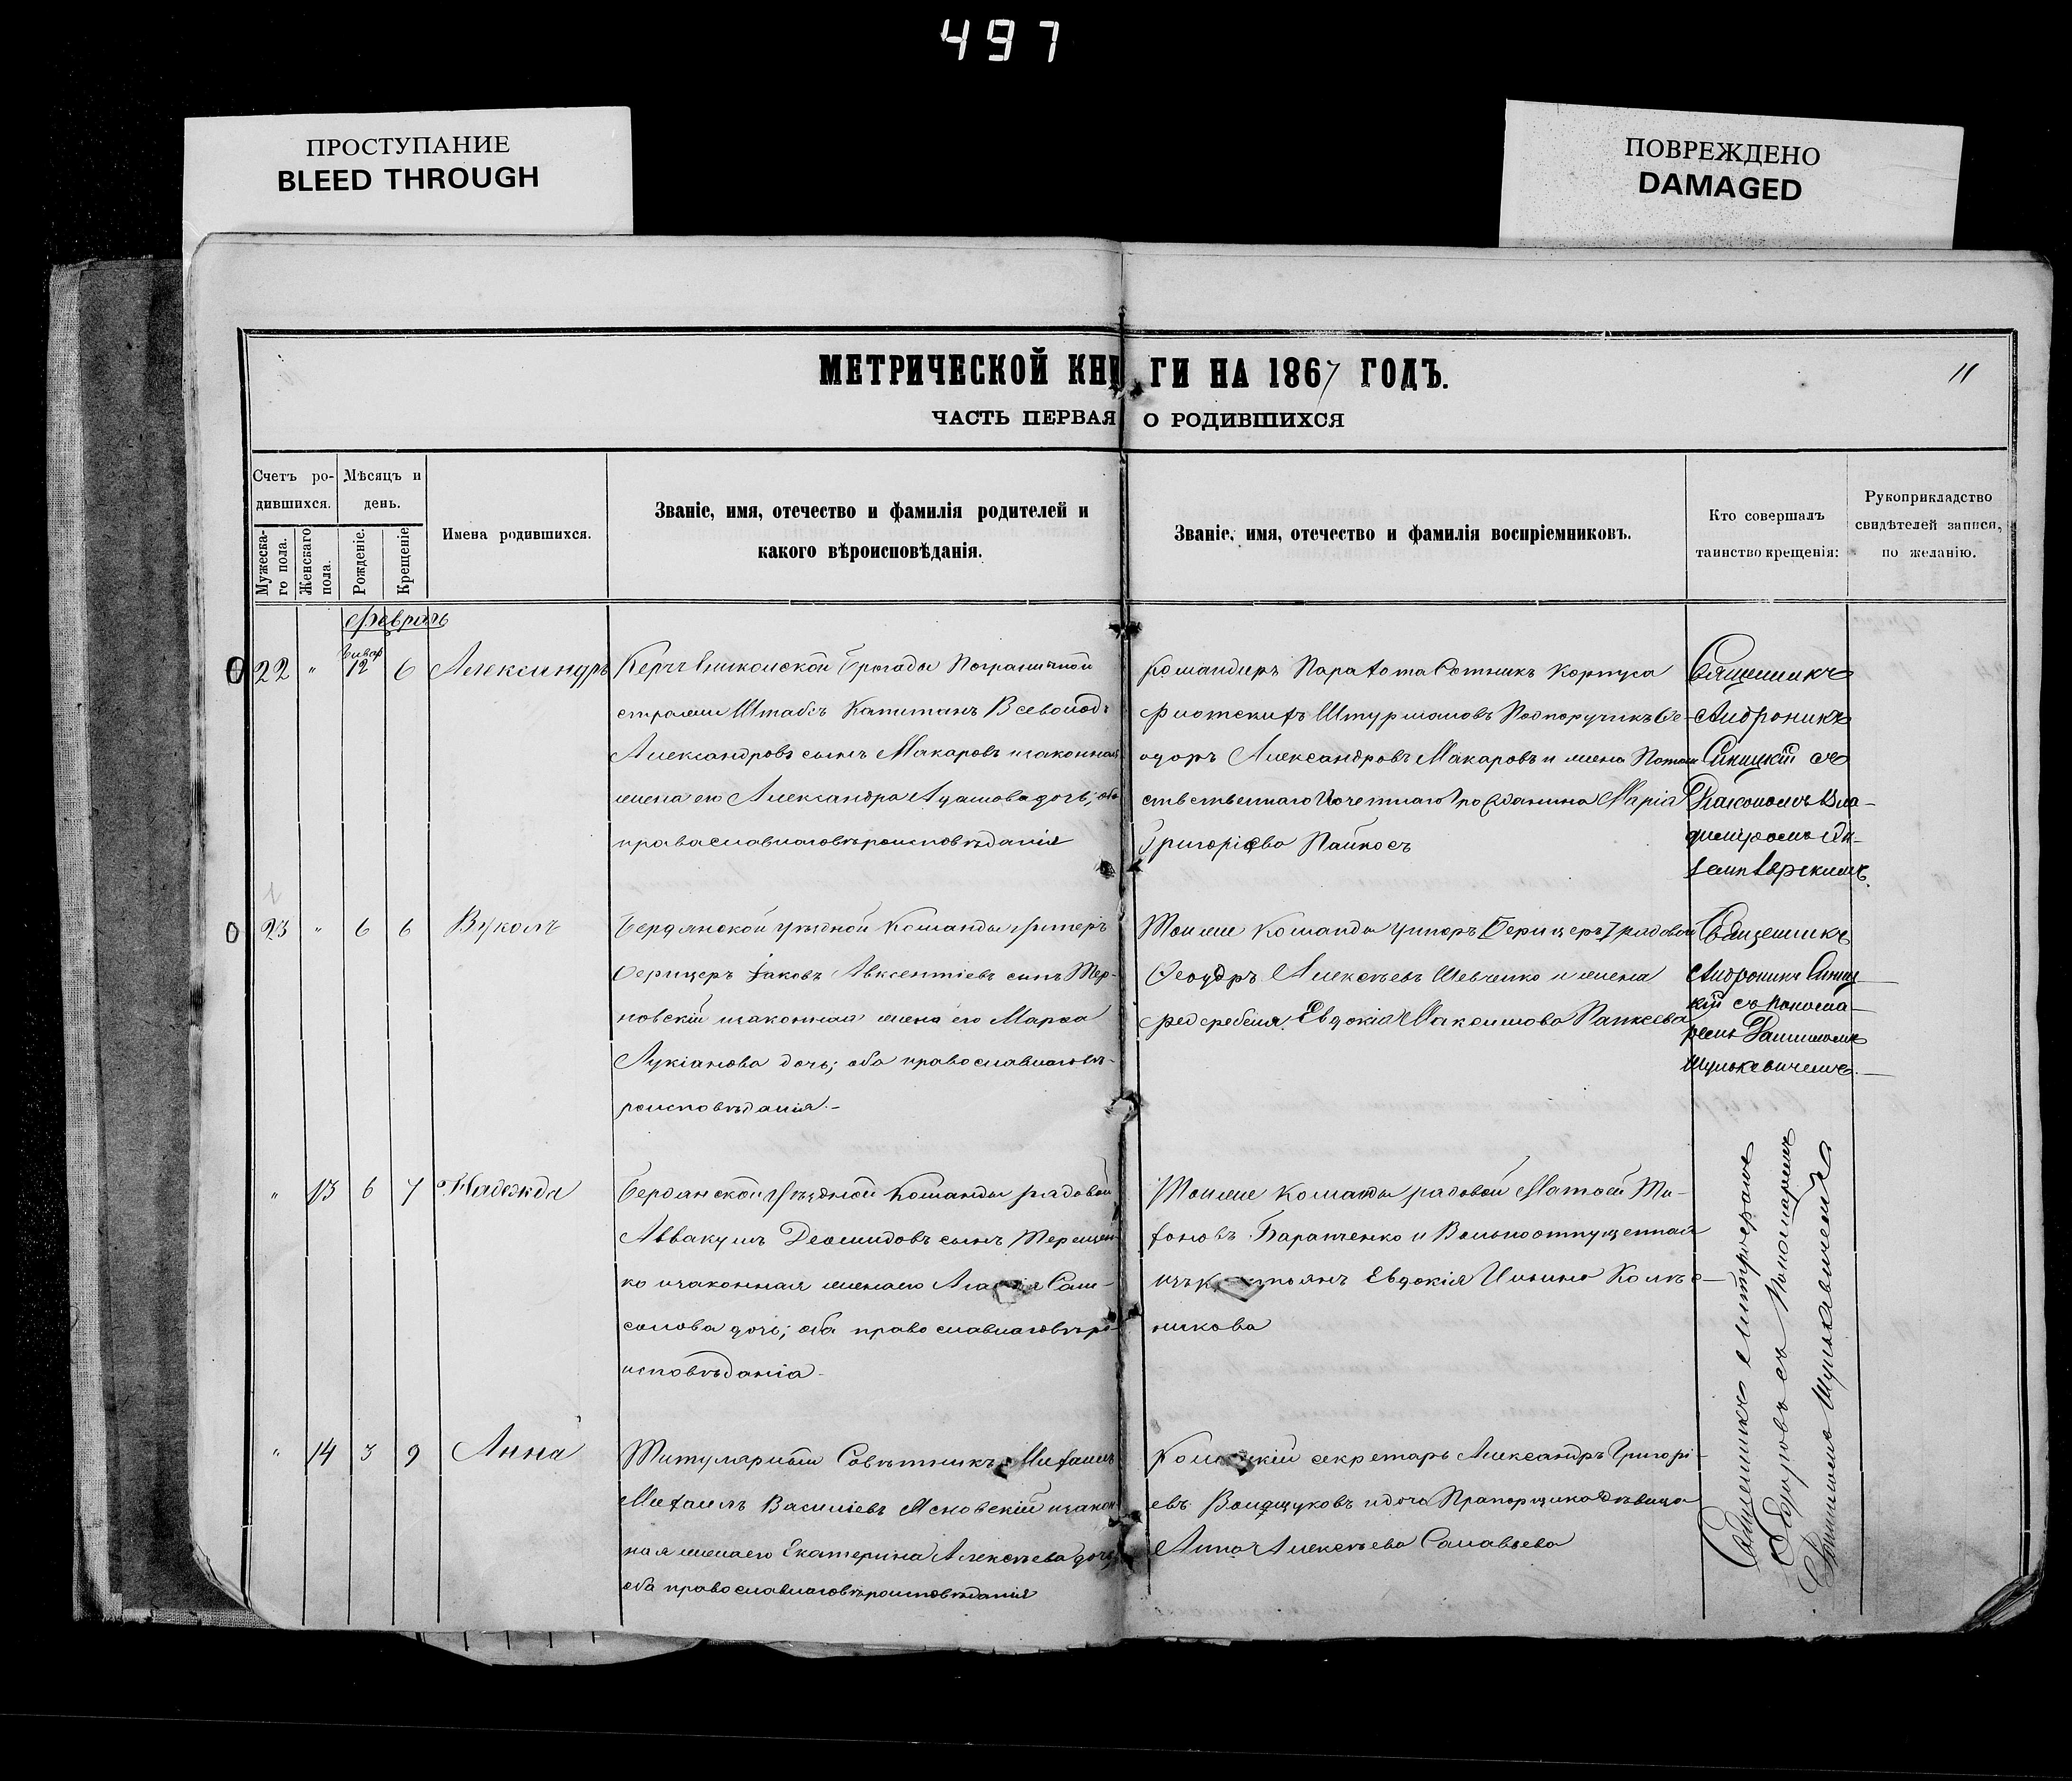 497
ПРОСТУПАНИЕ
BLEED THROUGH
ПОВРЕЖДЕНО
DAMAGED
МЕТРИЧЕСКОЙ КНИГИ НА 1867 ГОДЪ.
11
ЧАСТЬ ПЕРВАЯ О РОДИВШИХСЯ
Счетъ ро-
дившихся.
Мужеска-
го пола.
Женскаго
пола.
Мѣсяцъ и
день.
Рожденіе.
Крещеніе
Имена родившихся.
Званіе, имя, отечество и фамилія родителей и
какого вѣроисповѣданія.
Званіе, имя, отечество и фамилія воспріемниковъ.
Кто совершалъ
таинство крещенія:
Рукоприкладство
свидѣтелей записи,
по желанію.
Февраль
22 " Январ 12 6 Александръ
Керчь Еникольской бригады Пограничной
стражи Штабсъ Капитанъ Всеволодъ
Александровъ сынъ Макаровъ и законная
жена его Александра дочь; оба
православнаго вѣроисповѣданія
Командиръ Корпуса
флотскихъ Штурмановъ Подпоручикъ Ѳе-
одоръ Александровъ Макаровъ и жена Потом
ственнаго Почетнаго Гражданина Марія
Григоріева
Священникъ
Андроникъ
Синицкій съ
Діакономъ Вла-
диміромъ
23 " 6 6 Вуколъ
Бердянской уѣздной Команды Унтеръ
Офицеръ Іаковъ Авксентіевъ сынъ Тер-
новскій и законная жена его Марѳа
Лукіанова дочь; оба православнаго вѣ-
роисповѣданія.-
Тойже Команды Унтеръ [Офицеръ] рядовой
Ѳеодръ Алексѣевъ Шевченко и жена
фелдфебеля Евдокія Максимова
Священникъ
Андроникъ Синиц
кій съ Понома-
ремъ
" 13 6 7 Надежда
Бердянской Уѣздной Команды рядовой
Аввакумъ Деомидовъ сынъ Терещен
ко и законная жена его Сам-
сонова дочь; оба православнаго вѣро
исповѣданія-
Тойже команды рядовой Матѳей Ти-
хоновъ Баранченко и Вольноотпущенная
изъ Евдокія Ильина Колѣс-
никова
" 14 3 9 Анна
Титулярный Совѣтникъ Михаилъ
Михаилъ Василіевъ и закон
ная жена его Екатерина Алексѣева дочь
оба православнаго вѣроисповѣданія
секретарь Александръ Григорі-
евъ и дочь Прапорщика дѣвица
Анна Алексѣева Салавьева
Священникъ Митрофанъ
съ Пономаремъ